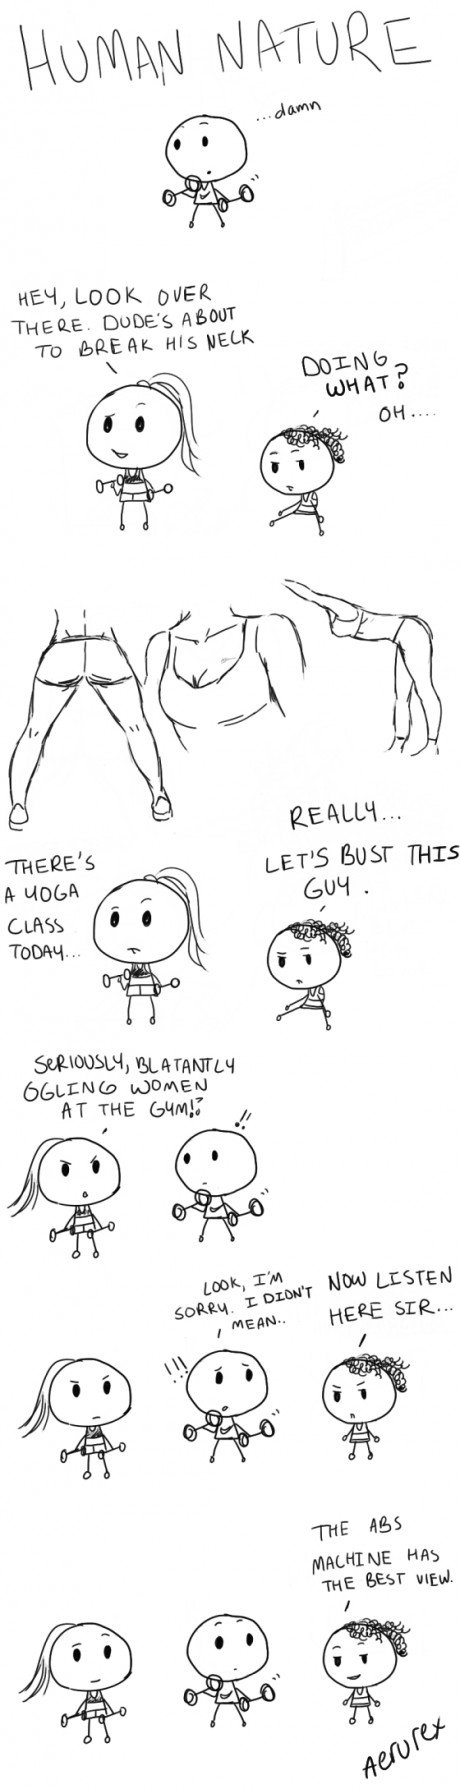 HUMAN NATURE
...damn
HEY, LOOK OVER
THERE. DUDE'S ABOUT
TO BREAK HIS NECK
DOING
WHAT?
OH....
THERE'S
A YOGA
CLASS
TODAY...
REALLY...
LET'S BUST THIS
GUY.
SERIOUSLY, BLATANTLY
OGLING WOMEN
AT THE GYM!?
!!
!!!
LOOK, I'M
SORRY. I DIDN'T
MEAN..
NOW LISTEN
HERE SIR...
THE ABS
MACHINE HAS
THE BEST VIEW.
Aerurex